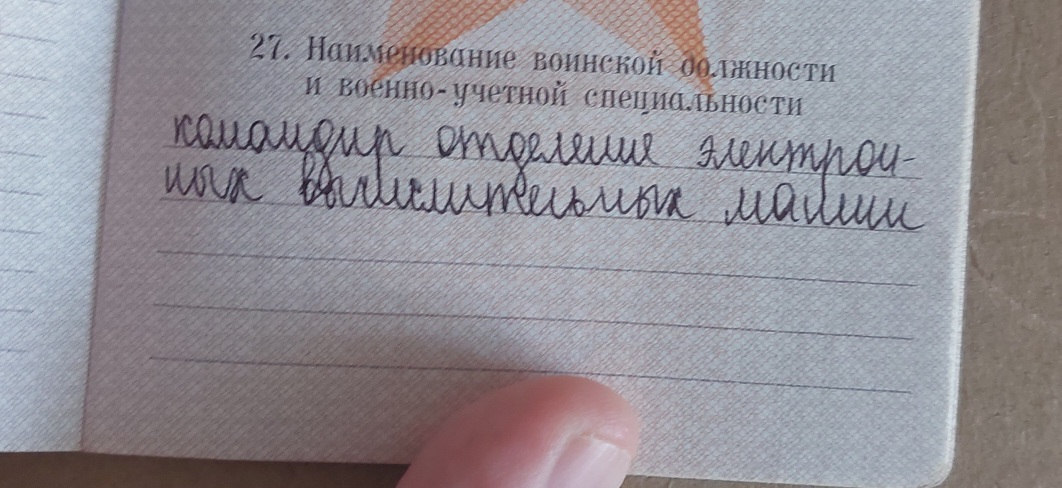 27. Наименование воинской должности
и военно-учетной специальности
командир отделения электрон-
ных вычислительных машин